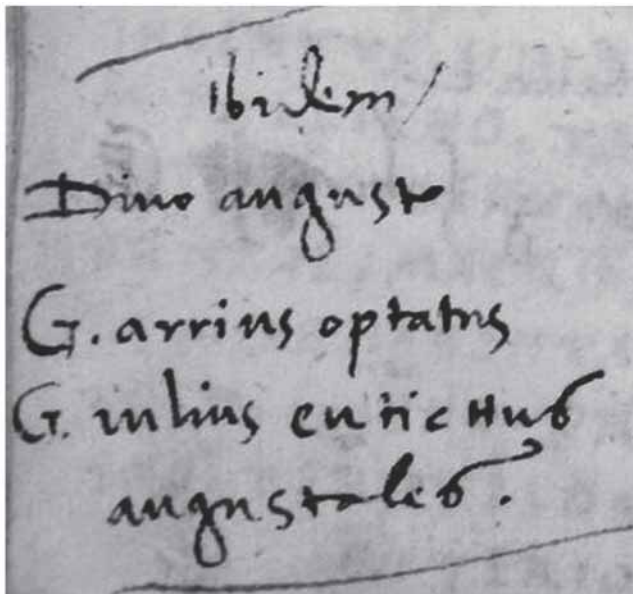 Ibidem /
Divo augusto
G. arrius optatus
G. iulius eutichus
augustales.